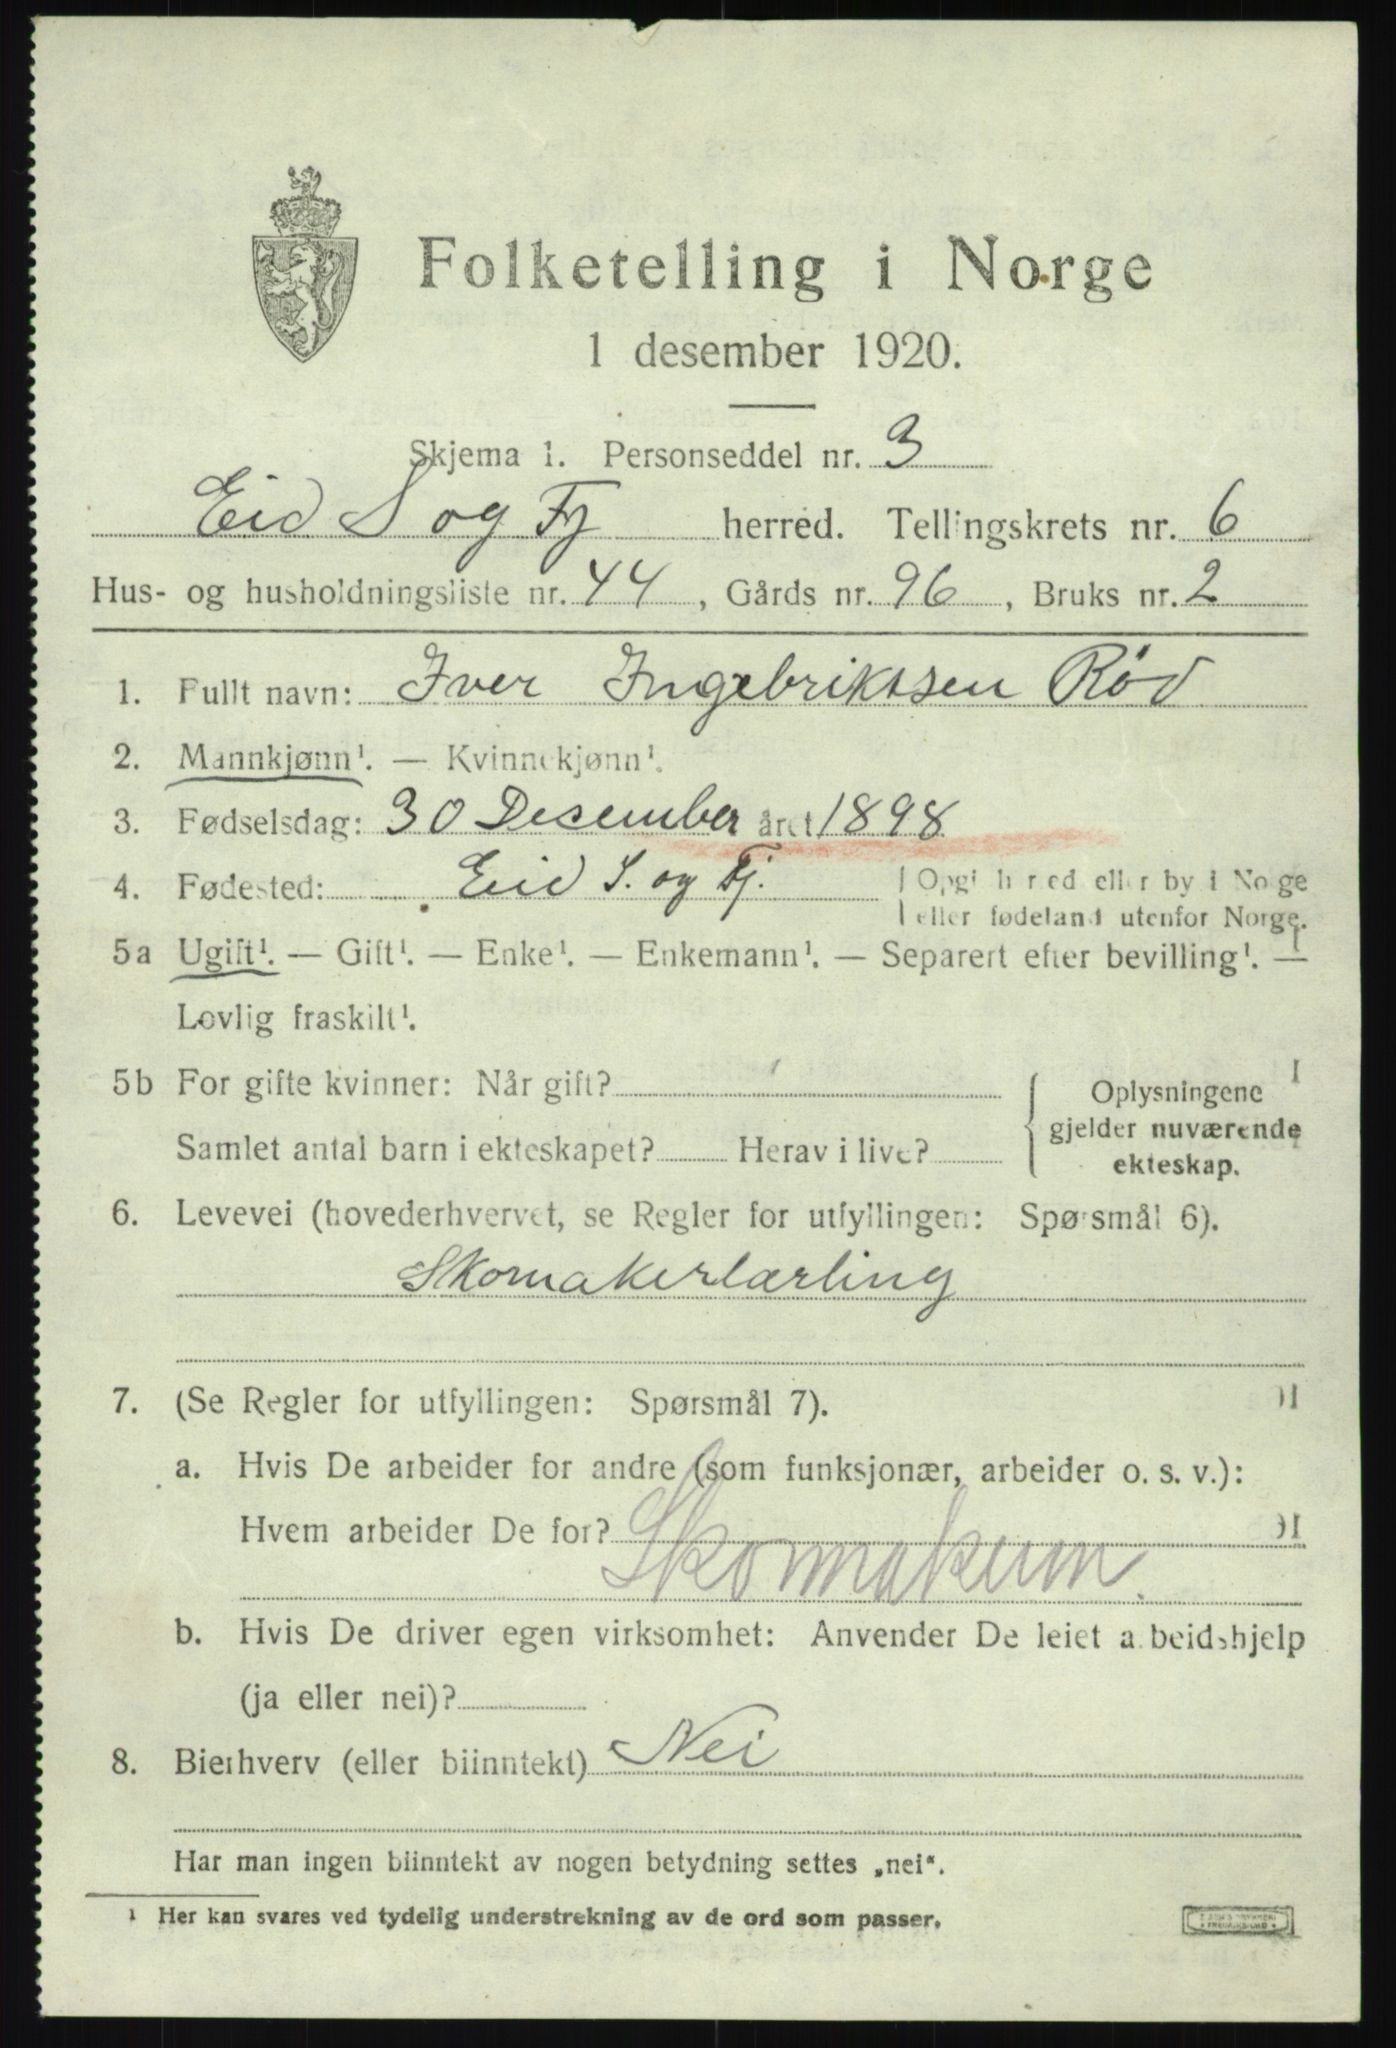 Folketelling i Norge
1 desember 1920.
Skjema 1. Personseddel nr. 3
Eid S og Fj herred. Tellingskrets nr. 6
Hus- og husholdningsliste nr. 44, Gårds nr. 96, Bruks nr. 2
1. Fullt navn: Iver Ingebriktsen Rød
2. Mannkjønn¹. — Kvinnekjønn¹.
3. Fødselsdag: 30 Desember året 1898
4. Fødested: Eid S. og Fj. Opgi herred eller by i Norge
eller fødeland utenfor Norge.
5a Ugift¹. — Gift¹. — Enke¹. — Enkemann¹. — Separert efter bevilling¹. —
Lovlig fraskilt¹.
5b For gifte kvinner: Når gift? Oplysningene
gjelder nuværende
Samlet antal barn i ekteskapet? Herav i live? ekteskap.
6. Levevei (hovederhvervet, se Regler for utfyllingen: Spørsmål 6).
Skomakerlærling
7. (Se Regler for utfyllingen: Spørsmål 7).
a. Hvis De arbeider for andre (som funksjonær, arbeider o. s. v.):
Hvem arbeider De for?
b. Hvis De driver egen virksomhet: Anvender De leiet arbeidshjelp
(ja eller nei)?
8. Bierhverv (eller biinntekt) Nei
Har man ingen biinntekt av nogen betydning settes „nei“.
¹ Her kan svares ved tydelig understrekning av de ord som passer.